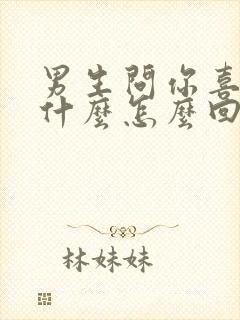 男生問你喜
什麼怎麼回
林妹妹